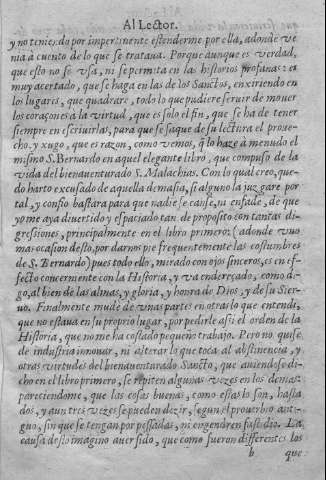 Al Lector.
y no teniēdo por impertinente estenderme por ella, adonde ve
nia a cuento de lo que se trataua. Porque aunque es verdad,
que esto no se vsa, ni se permita en las historias profanas: es
muy acertado, que se haga en las de los Sanctos, enxiriendo en
los lugares, que quadrare, todo lo que pudiere seruir de mouer
los coraçones a la virtud, que es solo el fin, que se ha de tener
siempre en escriuirlas, para que se saque de su lectura el proue-
cho, y xugo, que es razon, como vemos, q̃ lo haze a menudo el
mismo S. Bernardo en aquel elegante libro, que compuso de la
vida del bienauenturado S. Malachias. Con lo qual creo, que-
do harto escusado de aquella demasia, si alguno la juzgare por
tal, y confio bastara para que nadie se canse, ni enfade, de que
yo me aya diuertido y espaciado tan de proposito con tantas di
gressiones, principalmente en el libro primero: (adonde vuo
mas ocasion desto, por darnos pie frequentemente las costumbres
de S. Bernardo) pues todo ello, mirado con ojos sinceros, es en ef-
fecto concerniente con la Historia, y va endereçado, como di-
go, al bien de las almas, y gloria, y honra de Dios, y de su Sier-
uo. Finalmente mude de vnas partes en otras lo que entendi,
que no estaua en su proprio lugar, por pedirle assi el orden de la
Historia, que no me ha costado pequeño trabajo. Pero no quise
de industria innouar, ni alterar lo que toca al abstinencia, y
otras virtudes del bienauenturado Sancto, que auiendose di-
cho en el libro primero, se repiten algunas vezes en los demas:
pareciendome, que las cosas buenas, como estas lo son, hasta
dos, y aun tres vezes se pueden dezir, segun el prouerbio anti-
guo, sin que se tengan por pessadas, ni engendren fastidio. La
causa desto imagino auer sido, que como fueron differentes los
b que